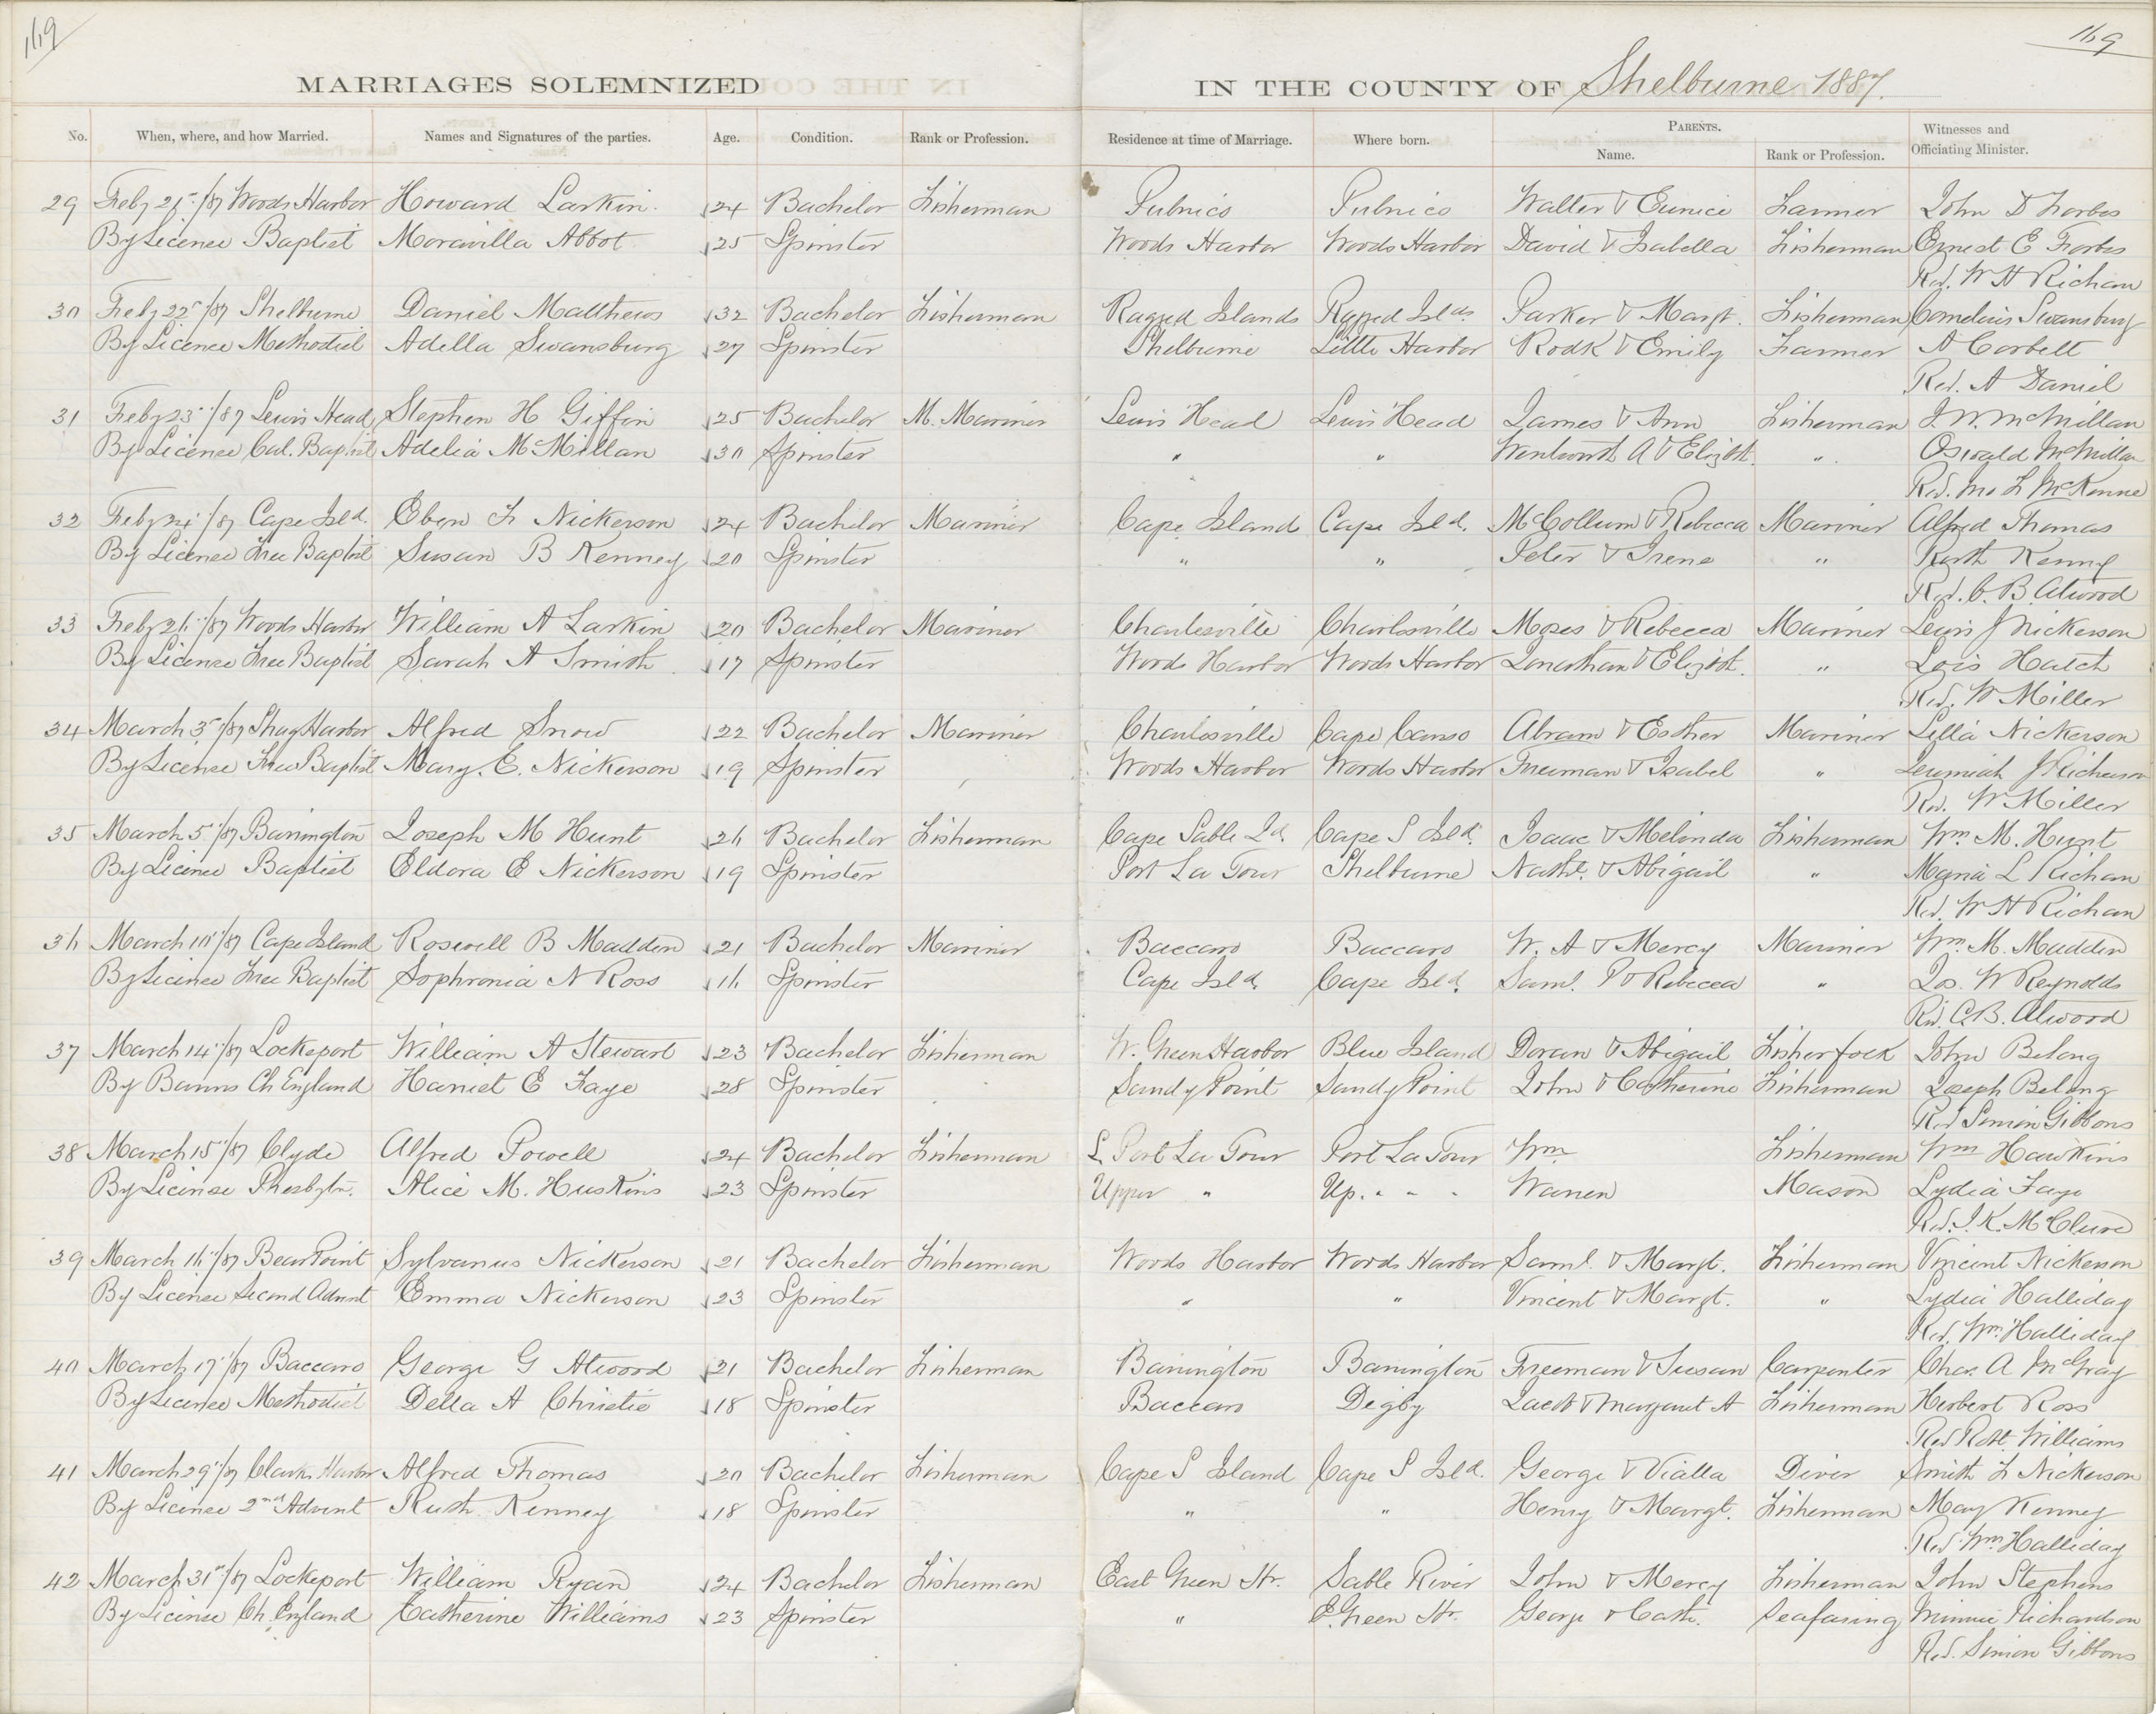 169
169
MARRIAGES SOLEMNIZED IN THE COUNTY OF Shelburne 1887.
No. When, where, and how Married. Names and Signatures of the parties. Age. Condition. Rank or Profession. Residence at time of Marriage. Where born. PARENTS. Name. Rank or Profession. Witnesses and Officiating Minister.
29 Feby /87 Woods Harbor Howard Larkin 24 Bachelor Fisherman Pubnico Pubnico Walter & Eunice Farmer John D Forbes
By Licence Baptist Moravilla Abbot 25 Spinster Woods Harbor Woods Harbor David & Isabella Fisherman Ernest E Forbes
Rev. W H Richan
30 Feby 22" /87 Shelburne Daniel Matthews 32 Bachelor Fisherman Ragged Islands Ragged Islds Parker & Margt. Fisherman Cornelius Swansburg
By Licence Methodist Adella Swansburg 27 Spinster Shelburne Little Harbor Rodk & Emily Farmer A Corbett
Rev. A Daniel
31 Feby 23" /87 Lewis Head Stephen H Giffin 25 Bachelor M. Mariner Lewis Head Lewis Head James & Ann Fisherman J. W. McMillan
By Licence Cal. Baptist Adelia McMillan 30 Spinster " " Wentworth A & Elizbt. " Oswald McMillan
Rev. Jno L McKenne
32 Feby 24" /87 Cape Isld. Eben F Nickerson 24 Bachelor Mariner Cape Island Cape Isld. McCollum & Rebecca Mariner Alfred Thomas
By Licence Free Baptist Susan B Kenney 20 Spinster " " Peter & Irene " Ruth Kenny
Rev. C. B. Atwood
33 Feby 26" /87 Woods Harbor William A Larkin 20 Bachelor Mariner Charlesville Charlesville Moses & Rebecca Mariner Lewis J Nickerson
By License Free Baptist Sarah A Smith 17 Spinster Woods Harbor Woods Harbor Jonathan & Elizbt. " Lois Hatch
Rev. W Miller
34 March 3" /87 Shag Harbor Alfred Snow 22 Bachelor Mariner Charlesville Cape Canso Abram & Esther Mariner Lilla Nickerson
By License Free Baptist Mary. E. Nickerson 19 Spinster Woods Harbor Woods Harbor Freeman & Isabel " Jeremiah
Rev. W Miller
35 March 5" /87 Barrington Joseph M Hunt 26 Bachelor Fisherman Cape Sable Id. Cape S Isld. Isaac & Melinda Fisherman Wm. M. Hunt
By Licence Baptist Eldora E Nickerson 19 Spinster Port La Tour Shelburne Nathl. & Abigail " Maria L Richan
Rev. W H Richan
36 March 10" /87 Cape Island Roswell B Madden 21 Bachelor Mariner Baccaro Baccaro W. A & Mercy Mariner Wm. M. Madden
By Licence Free Baptist Sophronia N Ross 16 Spinster Cape Isld. Cape Isld. Saml. P & Rebecca " Jos. W Reynolds
Rev. C. B. Atwood
37 March 14" /87 Lockeport William A Stewart 23 Bachelor Fisherman W. Green Harbor Blue Island Doran & Abigail Fisherfolk John Belong
By Banns Ch England Harriet E Faye 28 Spinster Sandy Point Sandy Point John & Catherine Fisherman Joseph Belong
Rev Simon Gibbons
38 March 15" /87 Clyde Alfred Powell 24 Bachelor Fisherman L. Port La Tour Port La Tour Wm Fisherman Wm Hawkins
By License Presbytn. Alice M. Huskins 23 Spinster Upper " Up. " " " Warren Mason Lydia Faye
Rev. I. K. McClure
39 March 16" /87 Bear Point Sylvanus Nickerson 21 Bachelor Fisherman Woods Harbor Woods Harbor Saml. & Margt. Fisherman Vincent Nickerson
By License Second Advnt Emma Nickerson 23 Spinster " " Vincent & Margt. " Lydia Halliday
Rev. Wm. Halliday
40 March 17" /87 Baccaro George G Atwood 21 Bachelor Fisherman Barrington Barrington Freeman & Susan Carpenter Chas. A McGray
By Licence Methodist Della A Christie 18 Spinster Baccaro Digby Jacob & Margaret A Fisherman Herbert Ross
Rev Robt. Williams
41 March 29" /87 Clarks Harbor Alfred Thomas 20 Bachelor Fisherman Cape S Island Cape S Isld. George & Vialla Diver Smith F Nickerson
By Licence 2nd Advent Ruth Kenney 18 Spinster " " Henry & Margt. Fisherman May Kenney
Rev Wm. Halliday
42 March 31st /87 Lockeport William Ryan 24 Bachelor Fisherman East Green Hr. Sable River John & Mercy Fisherman John Stephens
By License Ch. England Catherine Williams 23 Spinster " E. Green Hr. George & Cath. Seafaring Minnie Richardson
Rev. Simon Gibbons